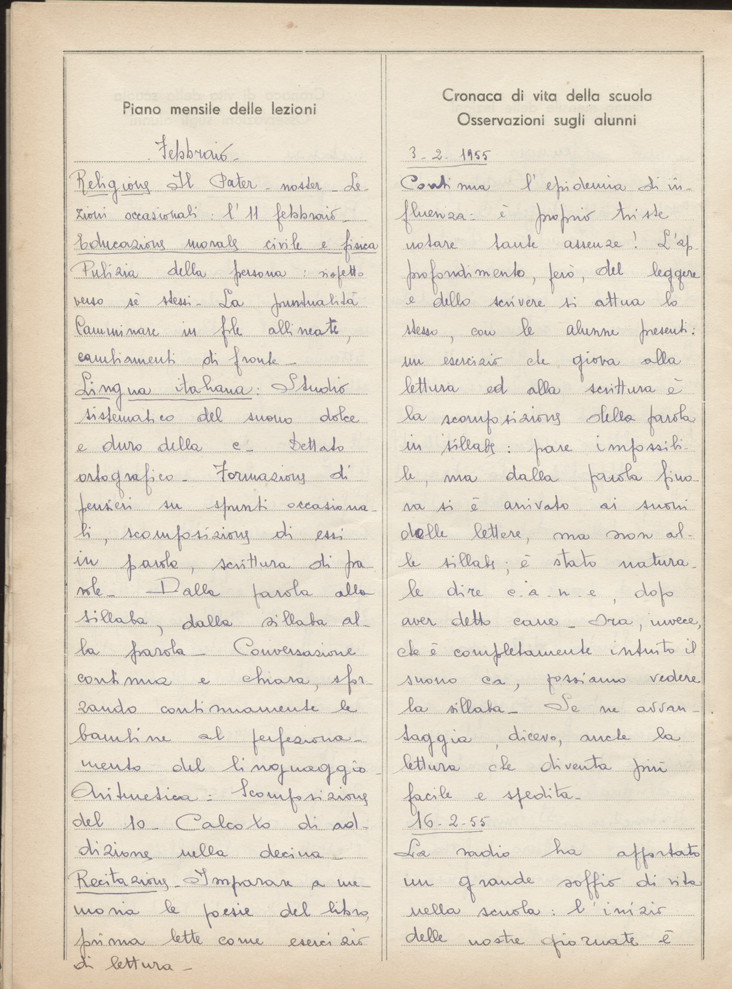 Piano mensile delle lezioni
Febbraio -
Religione Il Pater - noster - Le-
zioni occasionali : l'11 febbraio -
Educazione morale civile e fisica
Pulizia della persona : rispetto
verso sè stessi - La puntualità
Camminare in file allineate,
cambiamenti di fronte -
Lingua italiana : Studio
sistematico del suono dolce
e duro della c - Dettato
ortografico - Formazione di
pensieri su spunti occasiona-
li, scomposizione di essi
in parole, scrittura di pa-
role - Dalla parola alla
sillaba, dalla sillaba al-
la parola - Conversazione
continua e chiara, sfor-
zando continuamente le
bambine al perfeziona-
mento del linguaggio -
Aritmetica : Scomposizione
del 10 - Calcolo di ad-
dizione nella decina -
Recitazione - Imparare a me-
moria le poesie del libro,
prima lette come esercizio
di lettura -
Cronaca di vita della scuola
Osservazioni sugli alunni
3 - 2 - 1955
Continua l'epidemia di in-
fluenza : è proprio triste
notare tante assenze ! L'ap
profondimento, però, del leggere
e dello scrivere si attua lo
stesso, con le alunne presenti :
un esercizio che giova alla
lettura ed alla scrittura è
la scomposizione della parola
in sillabe : pare impossibi-
le, ma dalla parola fino-
ra si è arrivato ai suoni
delle lettere, ma non al-
le sillabe ; è stato natura-
le dire c. a. n. e, dopo
aver detto cane - Ora, invece,
che è completamente intuito il
suono ca, possiamo vedere
la sillaba - Se ne avvan-
taggia, dicevo, anche la
lettura che diventa più
facile e spedita -
16 - 2 - 55
La radio ha apportato
un grande soffio di vita
nella scuola : l'inizio
delle nostre giornate è